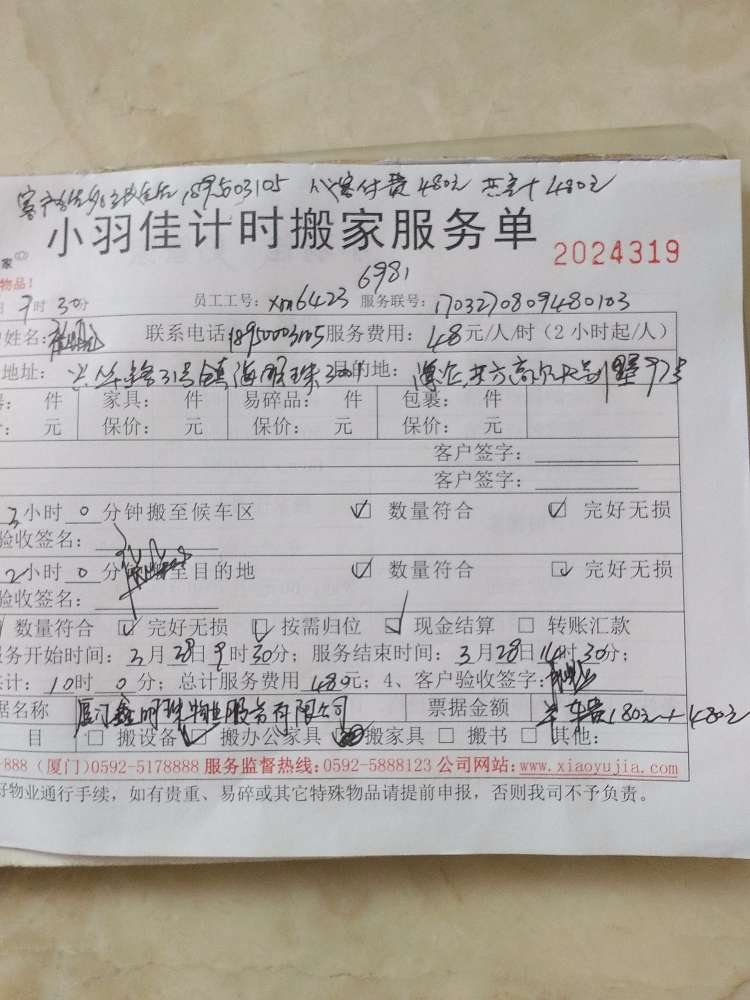 189503105 付费480元 480元
小羽佳计时搬家服务单 2024319
家
物品! 6981
日 9时30分 员工工号: xm6423 服务联号: 1703270809480103
姓名: 联系电话 18950003105 服务费用: 48元/人/时 (2小时起/人)
地址: 31号镇海明珠 目的地: 东方高尔夫别墅97号
件 家具: 件 易碎品: 件 包裹: 件
元 保价: 元 保价: 元 保价: 元
客户签字:
客户签字:
3小时 0分钟搬至候车区 数量符合 完好无损
验收签名:
2小时 0分 至目的地 数量符合 完好无损
验收签名:
数量符合 完好无损 按需归位 现金结算 转账汇款
服务开始时间: 3月28日9时30分; 服务结束时间: 3月28日14时30分;
共计: 10时 0分; 总计服务费用 480元; 4、客户验收签字:
据名称 厦门鑫明珠物业服务有限公司 票据金额 车费180元+480元
目 搬设备 搬办公家具 搬家具 搬书 其他:
-888 (厦门)0592-5178888 服务监督热线:0592-5888123 公司网站:www.xiaoyujia.com
好物业通行手续，如有贵重、易碎或其它特殊物品请提前申报，否则我司不予负责。